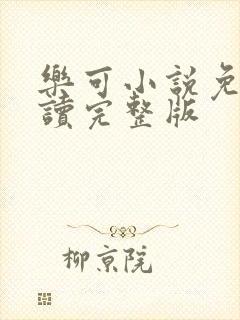 樂可小說免
讀完整版
柳京院